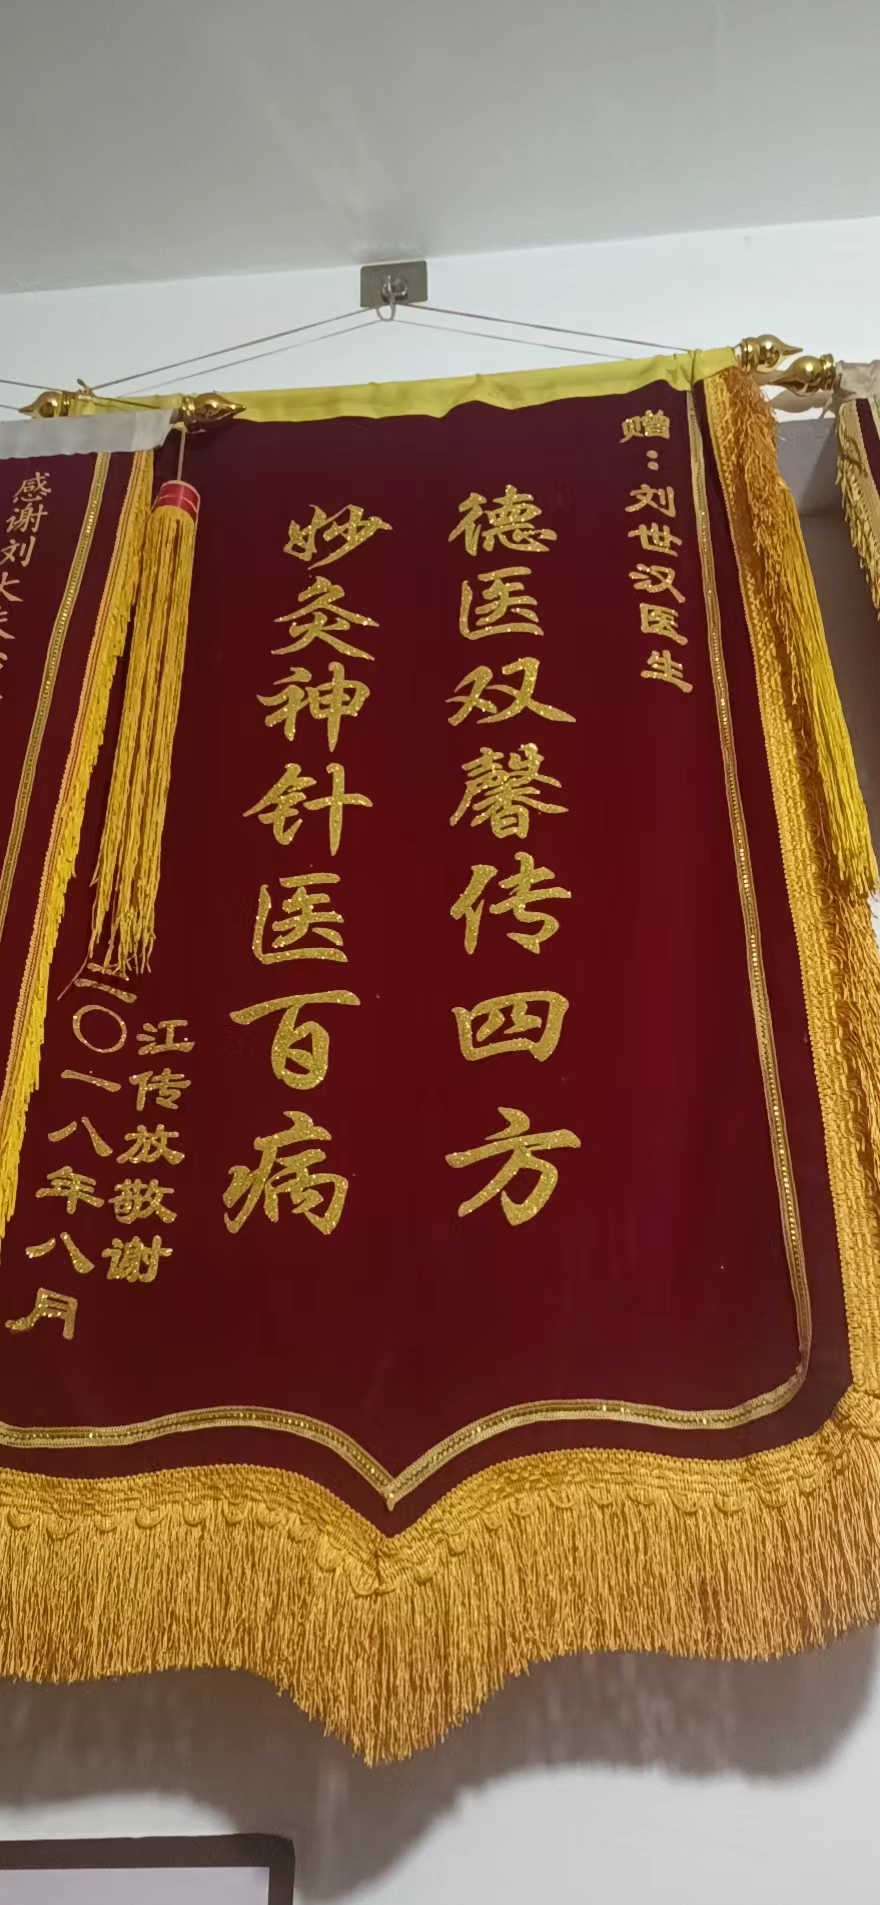 赠：刘世汉医生
德医双馨传四方
妙灸神针医百病
江传放敬谢
二〇一八年八月
感谢刘大夫